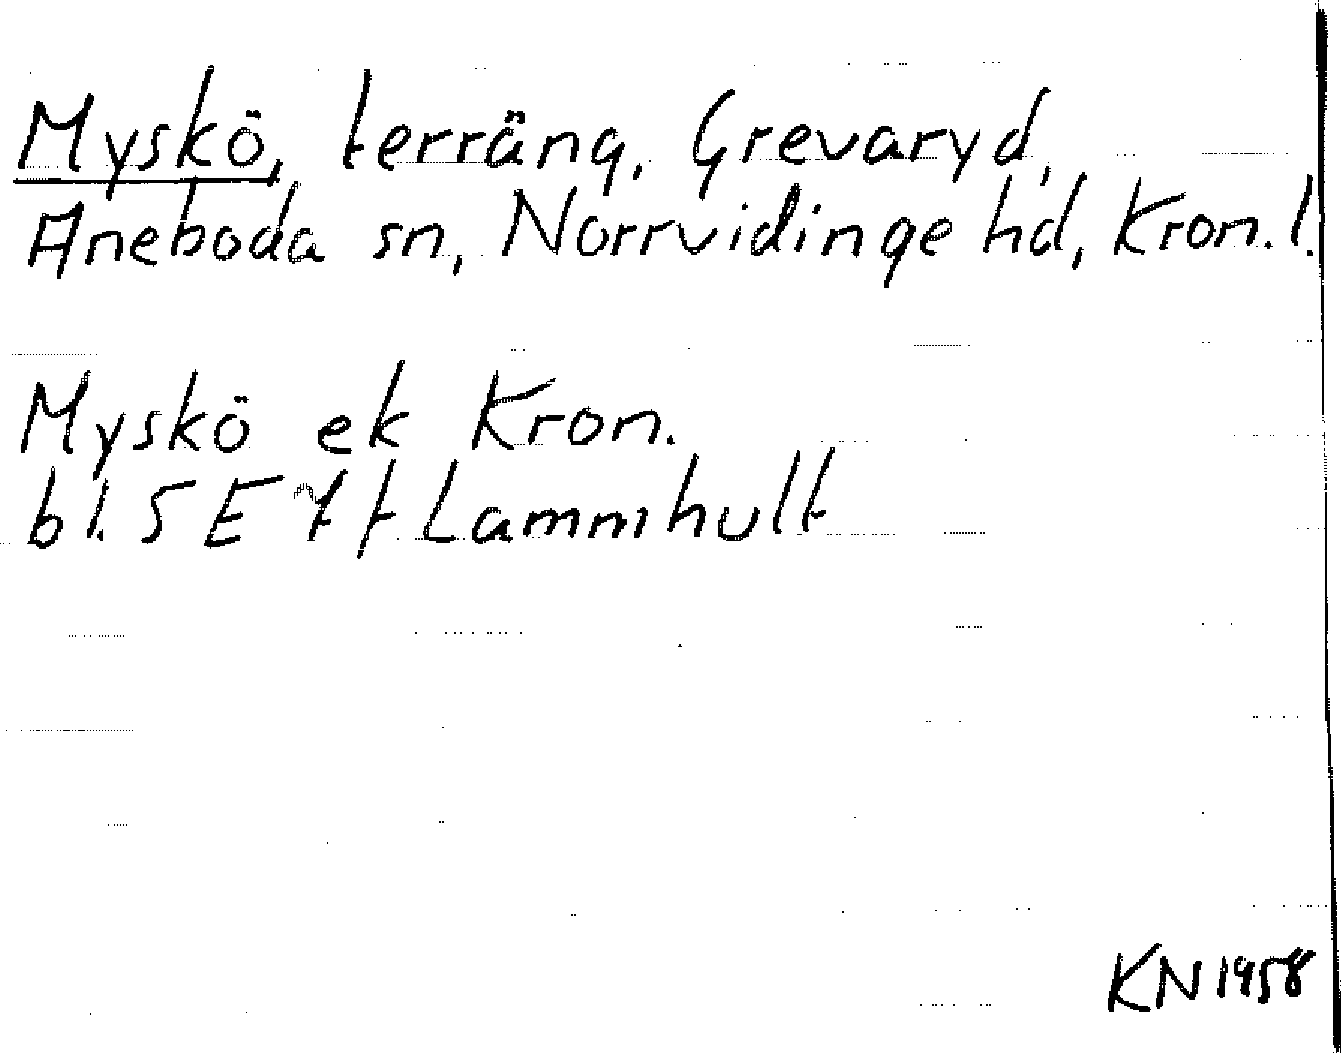 Myskö, terräng, Grevaryd,
Aneboda sn, Norrvidinge hd, Kron. l.
Myskö ek Kron.
bl. 5 E 7 f Lammhult
KN 1958